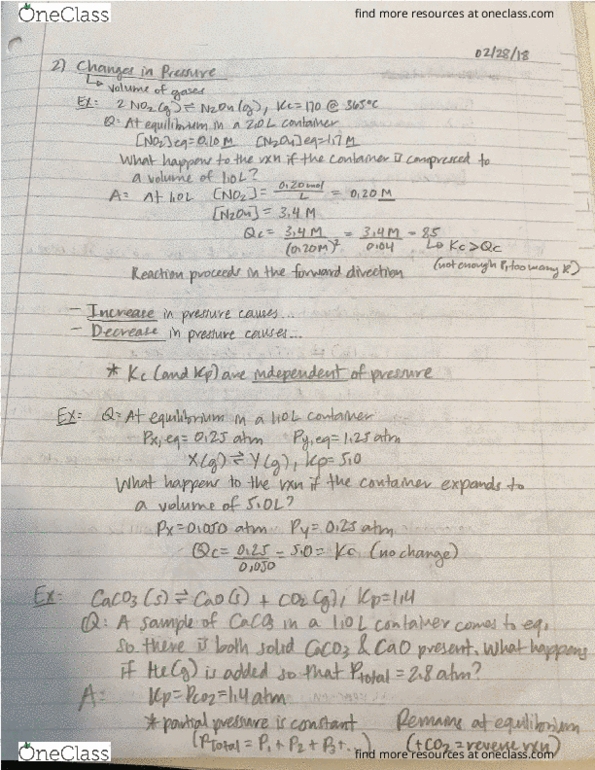 OneClass
find more resources at oneclass.com
02/28/18
2) Changes in Pressure
↳ volume of gases
Ex: 2 NO2(g) ⇌ N2O4(g), Kc=170 @ 365°C
Q: At equilibrium in a 2.0L container
[NO2]eq=0.10M [N2O4]eq=1.7M
What happens to the rxn if the container is compressed to
a volume of 1.0L?
A: At 1.0L [NO2] = 0.20mol/L = 0.20M
[N2O4] = 3.4 M
Qc = 3.4 M/(0.20M)² = 3.4M/0.04 = 85
↳ Kc > Qc
(not enough P, too many R)
Reaction proceeds in the forward direction
- Increase in pressure causes...
- Decrease in pressure causes...
* Kc (and Kp) are independent of pressure
Ex: Q: At equilibrium in a 1.0L container
Px,eq = 0.25 atm Py,eq = 1.25 atm
X(g) ⇌ Y(g), Kp = 5.0
What happens to the rxn if the container expands to
a volume of 5.0L?
Px = 0.050 atm Py = 0.25 atm
Qc = 0.25/0.050 = 5.0 = Kc (no change)
Ex: CaCO3(s) ⇌ CaO(s) + CO2(g), Kp=1.4
Q: A sample of CaCO3 in a 1.0L container comes to eq,
so there is both solid CaCO3 & CaO present. What happens
if He(g) is added so that Ptotal = 2.8 atm?
A: Kp = PCO2 = 1.4 atm
* partial pressure is constant Remains at equilibrium
(Ptotal = P1 + P2 + P3 + ...) (+CO2 = reverse rxn)
OneClass
find more resources at oneclass.com